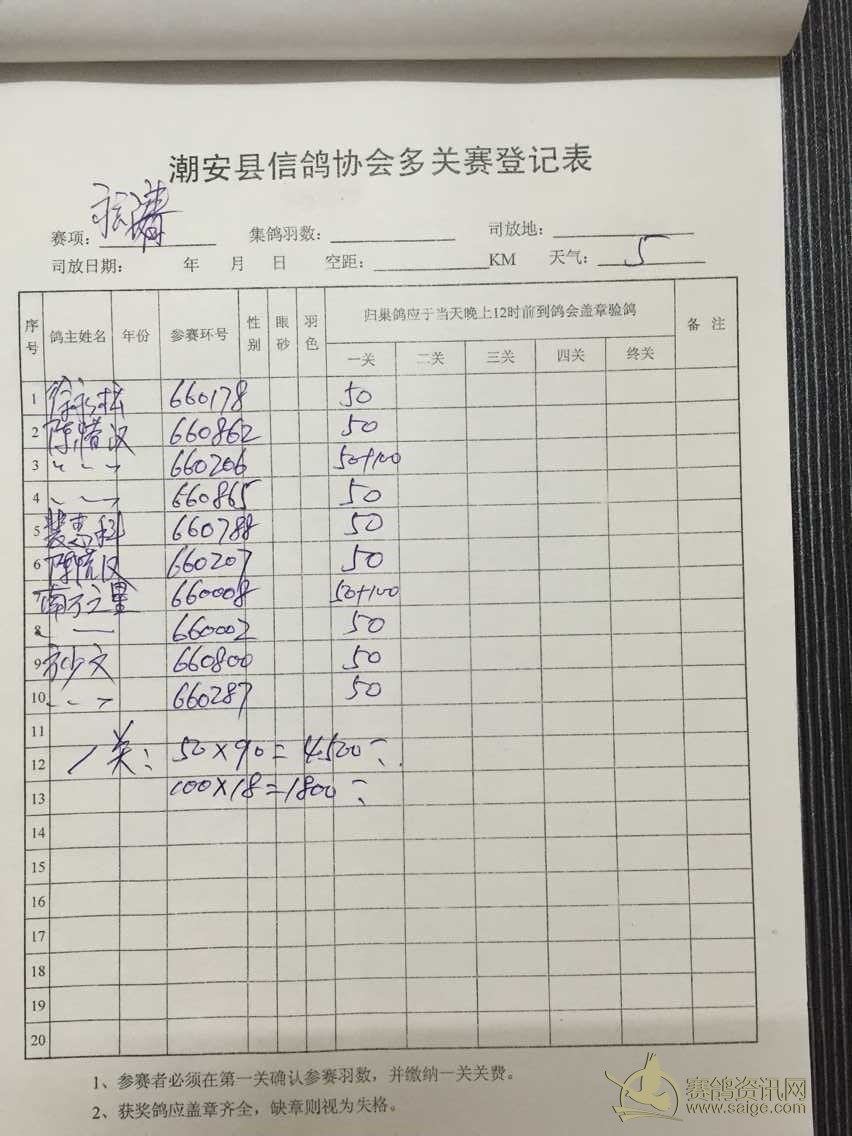 潮安县信鸽协会多关赛登记表
赛项： 集鸽羽数： 司放地：
司放日期： 年 月 日 空距： KM 天气： 5
序号 鸽主姓名 年份 参赛环号 性别 眼砂 羽色 归巢鸽应于当天晚上12时前到鸽会盖章验鸽 备 注
一关 二关 三关 四关 终关
1 徐永松 660178 50
2 陈惜汉 660862 50
3 〃 〃 660206 50+100
4 〃 〃 660865 50
5 660788 50
6 660207 50
南方之星 660008 50+100
8 660002 50
9 方少文 660800 50
10 〃 〃 660287 50
11
12 1关: 50×90=4500元
13 100×18=1800元
14
15
16
17
18
19
20
1、参赛者必须在第一关确认参赛羽数，并缴纳一关关费。
2、获奖鸽应盖章齐全，缺章则视为失格。
赛鸽资讯网
www.saige.com